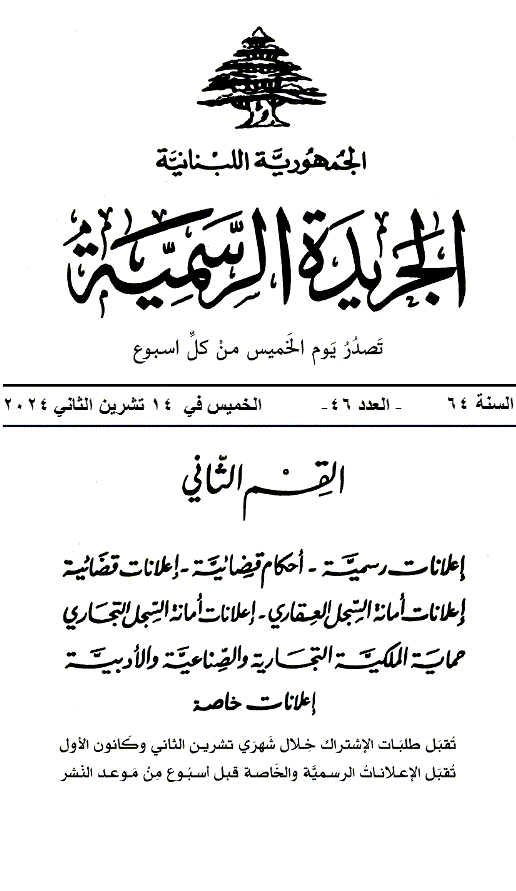 الجُمهُوريَّة اللبْنانيَّة
الجَريدَة الرسَّمِيَّة
تَصدُرُ يَوم الخَميس منْ كلِّ اسبوع
السنة ٦٤ - العدد ٤٦- الخميس في ١٤ تشرين الثاني ٢٠٢٤
القِسْم الثَّاني
إعلانات رسميَّة - أحكام قضائيَّة - إعلانات قضائية
إعلانات أمانة السِّجل العقاري - إعلانات أمانة السِّجل التجاري
حماية الملكيَّة التجارية والصِّناعيَّة والأدبيَّة
إعلانات خاصة
تُقبَل طلبَات الإشتراك خِلال شَهرَي تشرين الثاني وكَانون الأول
تُقبَل الإعلاناتُ الرسميَّة والخَاصة قبل أسبُوع مِنْ مَوعد النَشر